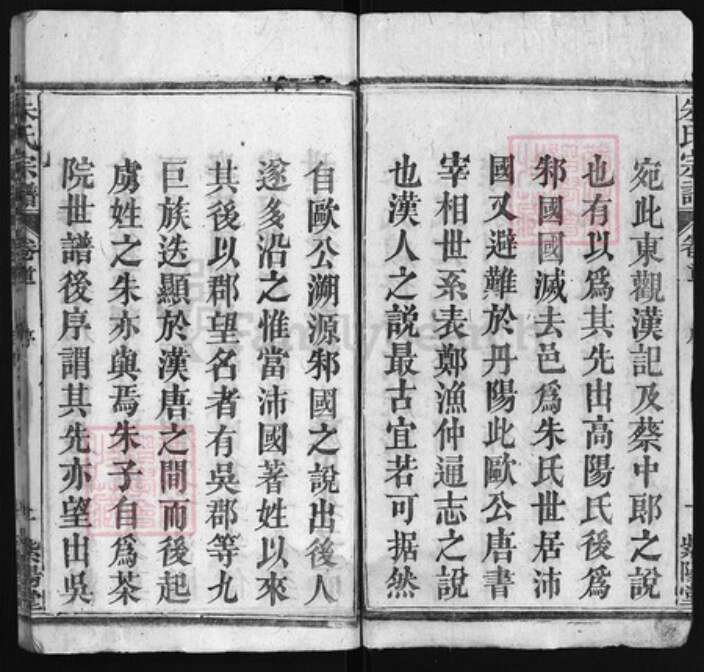 宛此東觀漢記及蔡中郎之說
也有以爲其先出高陽氏後爲
邾國國滅去邑爲朱氏世居沛
國又避難於丹陽此歐公唐書
宰相世系表鄭漁仲通志之說
也漢人之說最古宜若可据然
自歐公溯源邾國之說出後人
遂多沿之惟當沛國著姓以來
其後以郡望名者有吳郡等九
巨族迭顯於漢唐之間而後起
虜姓之朱亦與焉朱子自爲茶
院世譜後序謂其先亦望出吳
朱氏宗譜 卷首 序 紫陽堂
朱氏宗譜 卷首
紫陽堂